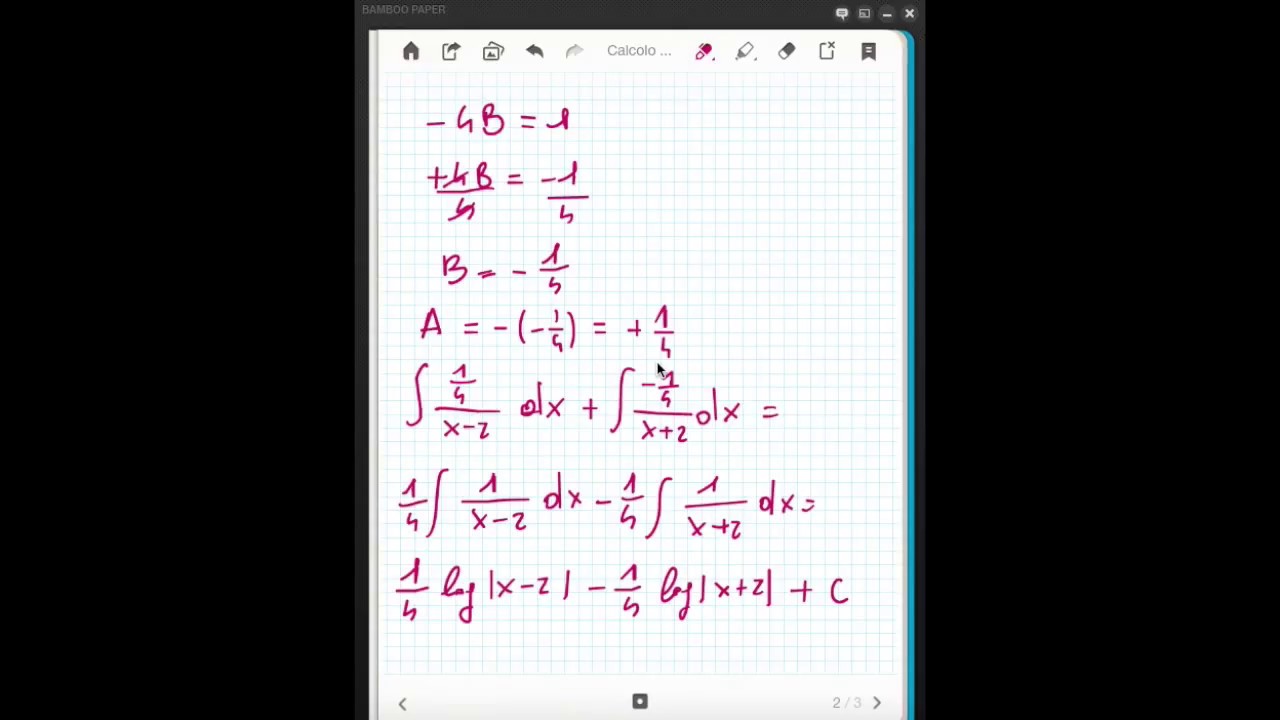 BAMBOO PAPER
Calcolo ...
- 4B = 1
+4B/4 = -1/4
B = - 1/4
A = - (- 1/4) = + 1/4
∫ (1/4)/(x-2) dx + ∫ (-1/4)/(x+2) dx =
1/4 ∫ 1/(x-2) dx - 1/4 ∫ 1/(x+2) dx =
1/4 log |x-2| - 1/4 log |x+2| + C
2 / 3